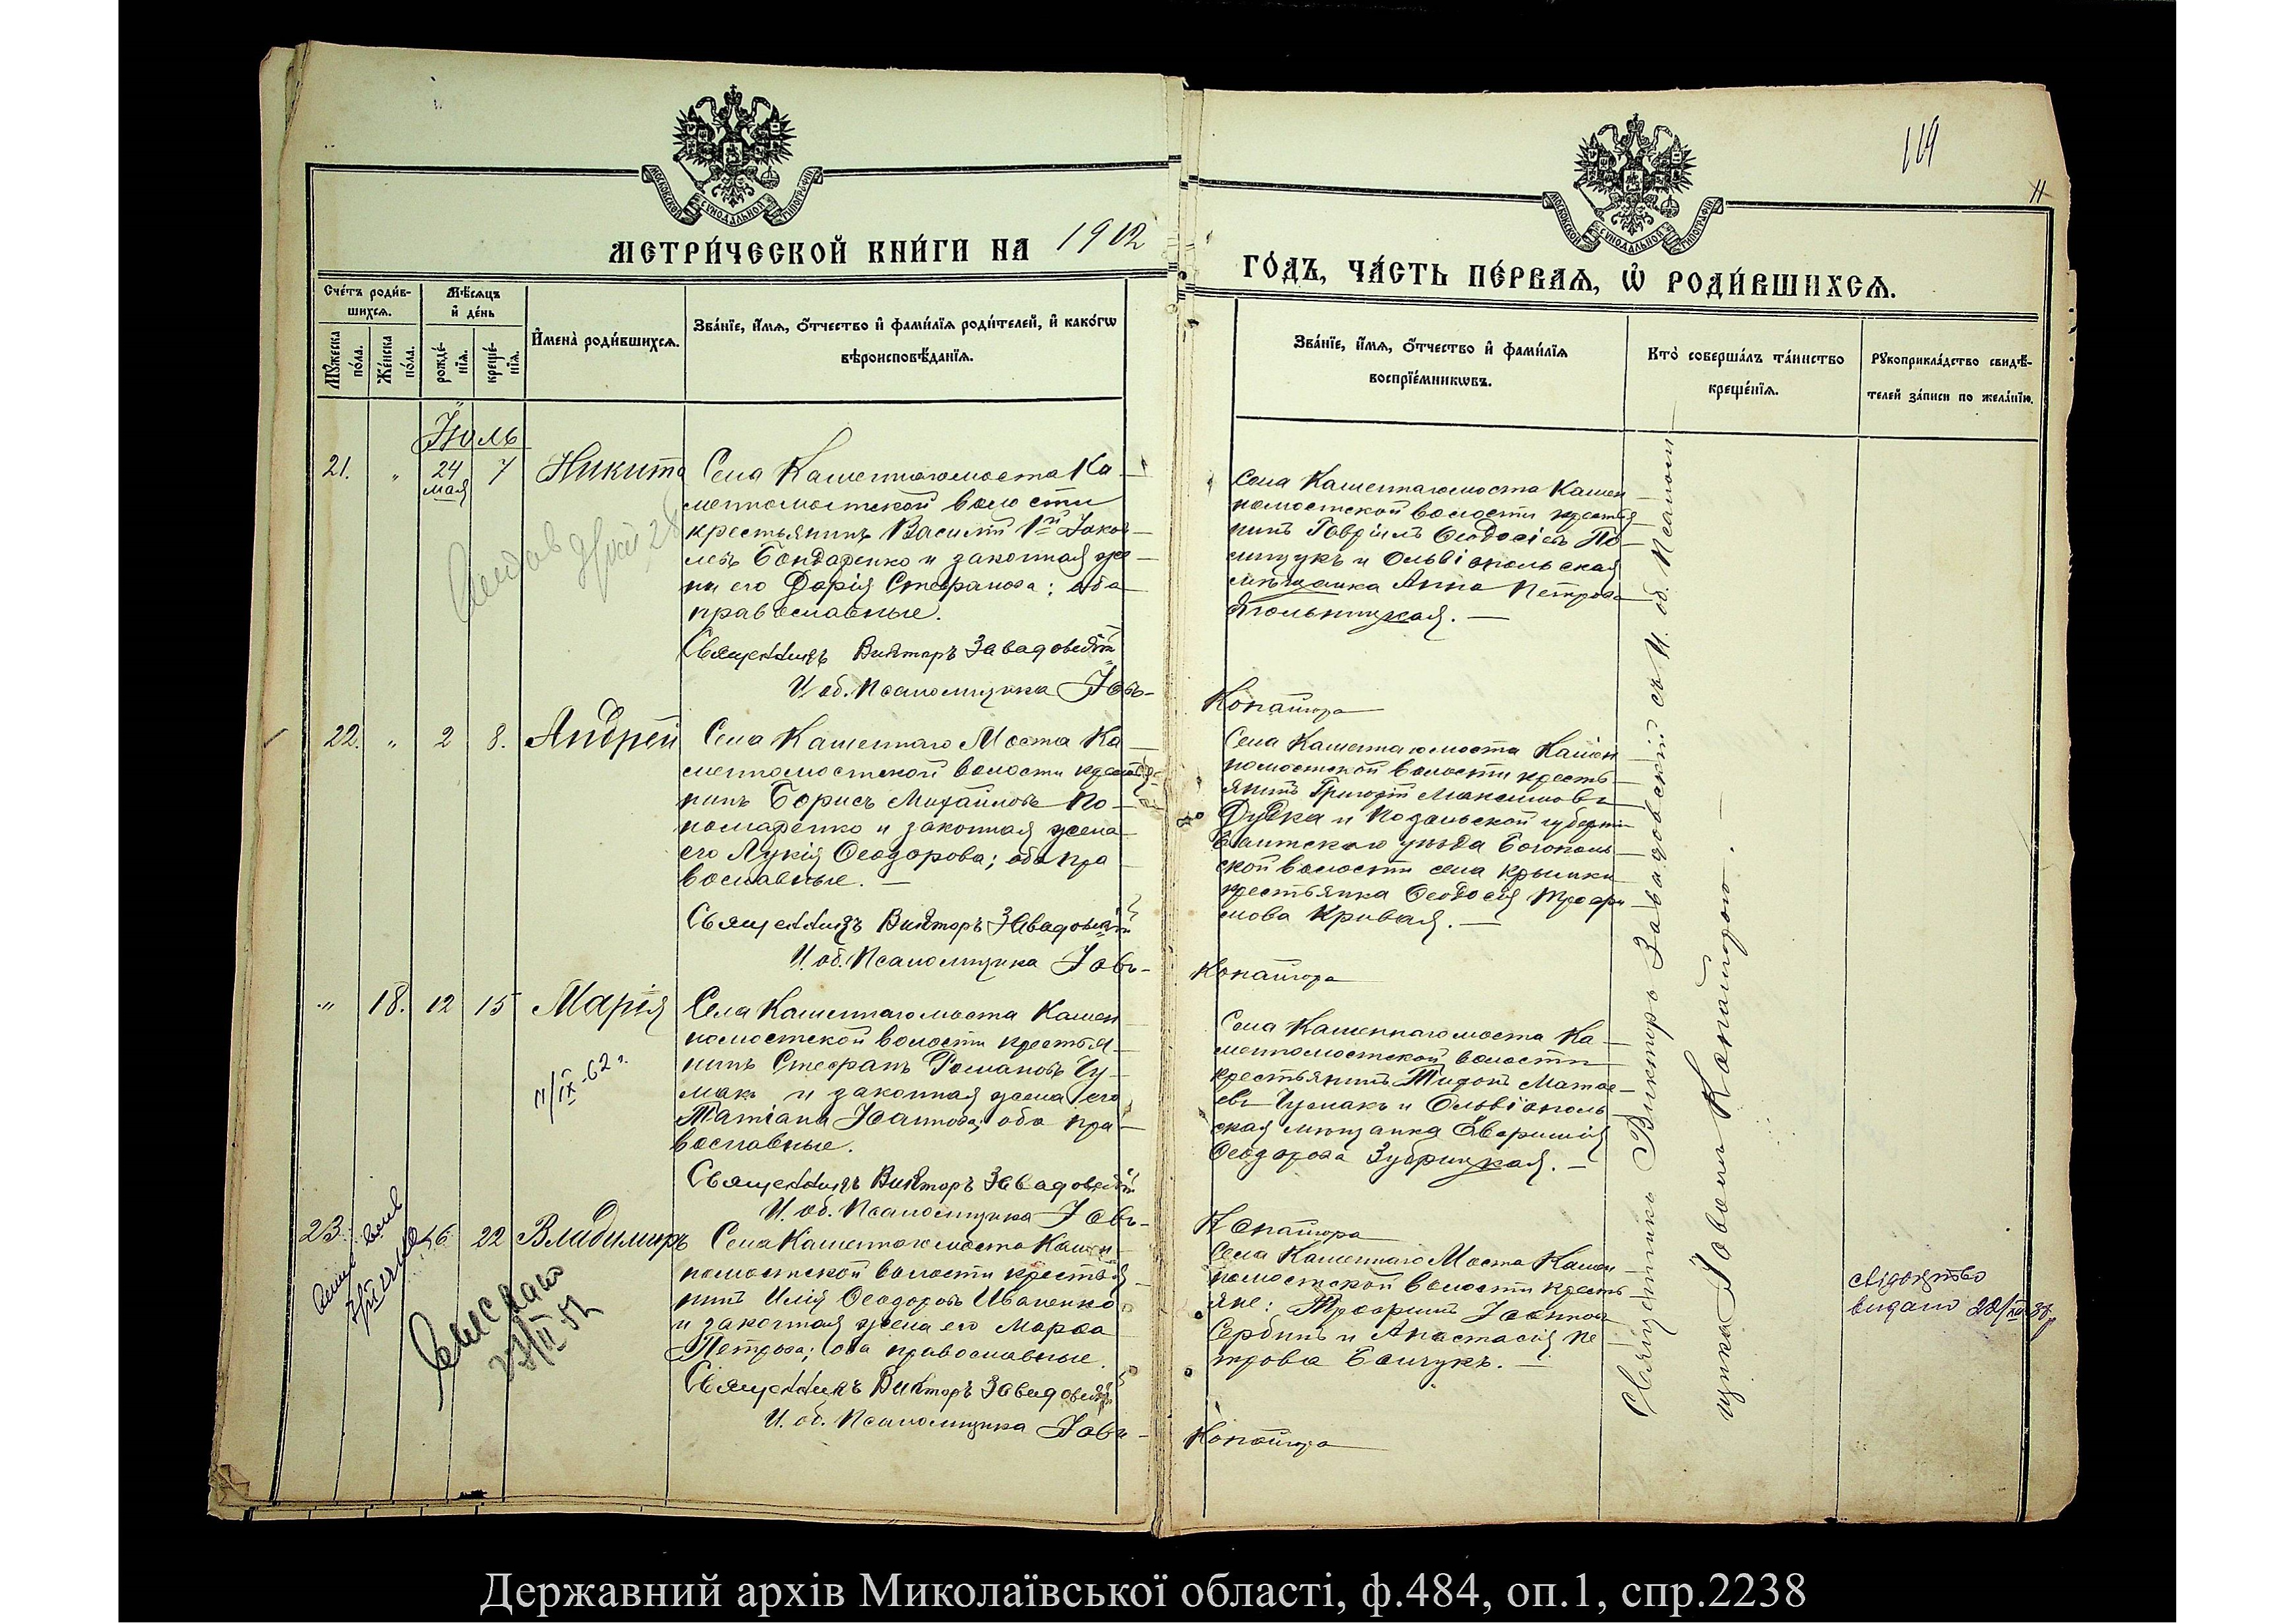 119
11
МОСКОВСКОЙ СУНОДАЛЬНОЙ ТИПОГРАФІИ
МОСКОВСКОЙ СУНОДАЛЬНОЙ ТИПОГРАФІИ
МЕТРИ́ЧЕСКОЙ КНИ́ГИ НА 1902
ГО́ДЪ, ЧА́СТЬ ПЕ́РВАѦ, Ѿ РОДИ́ВШИХСѦ.
Сче́тъ роди́в-
шихсѧ.
Мꙋ́жеска по́ла.
Же́нска по́ла.
Мѣ́сѧцъ
и́ де́нь
рожде́-
нїѧ.
креще́-
нїѧ.
И҆мена̀ роди́вшихсѧ.
Зва́нїе, и҆́мѧ, ѻ҆́тчество и҆ фами́лїѧ роди́телей, и҆ како́гѡ
вѣроисповѣ́данїѧ.
Зва́нїе, и҆́мѧ, ѻ҆́тчество и҆ фами́лїѧ
воспрїе́мникѡвъ.
Кто̀ соверша́лъ та́инство
креще́нїѧ.
Рꙋкоприкла́дство свидѣ́-
телей за́писи по жела́нїю.
Іюль
21. " 24 мая 7 Никита
Села Каменнагомоста Ка-
меннomостской волости
крестьянинъ Василій 1й Іаков-
левъ Бондаренко и законная же-
на его Дарія Стефанова; оба
православные.
Священникъ Викторъ Завадовскій
И. об. Псаломщика Іовъ-
Копайгора
Села Каменнагомоста Камен-
номостской волости крестья-
нинъ Гавріилъ Ѳеодосіевъ По-
лищукъ и Ольвіопольская
мѣщанка Анна Петрова
Ягольницкая.
22. " 2 8. Андрей
Села Каменнаго Моста Ка-
менномостской волости крестья-
нинъ Борисъ Михайловъ По-
номаренко и законная жена
его Лукія Ѳеодорова; оба пра-
вославные.
Священникъ Викторъ Завадовскій
И. об. Псаломщика Іовъ-
Копайгора
Села Каменнагомоста Камен-
номостской волости кресть-
янинъ Григорій Максимовъ
Дудка и Подольской губерніи
Балтскаго уѣзда Богополь-
ской волости села Крымки
крестьянка Ѳеодосія Трофи-
мова Кривая.
" 18. 12 15 Марія
11/IX-62 г.
Села Каменнагомоста Камен-
номостской волости крестья-
нинъ Стефанъ Романовъ Чу-
макъ и законная жена его
Татіана Іоаннова; оба пра-
вославные.
Священникъ Викторъ Завадовскій
И. об. Псаломщика Іовъ-
Копайгора
Села Каменнагомоста Ка-
менномостской волости
крестьянинъ Тихонъ Матѳе-
евъ Чумакъ и Ольвіополь-
ская мѣщанка
Ѳеодорова Зубрицкая.
23. 16 22 Владимиръ
Села Каменнагомоста Камен-
номостской волости крестья-
нинъ Илія Ѳеодоровъ Иваненко
и законная жена его Марѳа
Петрова; оба православные.
Священникъ Викторъ Завадовскій
И. об. Псаломщика Іовъ-
Копайгора
Села Каменнаго Моста Камен-
номостской волости кресть-
яне: Трофимъ Іоанновъ
Сербинъ и Анастасія Пе-
трова Балчукъ.
Священникъ Викторъ Завадовскій съ И. об. Псаломщика Іовомъ Копайгорою.
свідоцтво
видано
Державний архів Миколаївської області, ф.484, оп.1, спр.2238